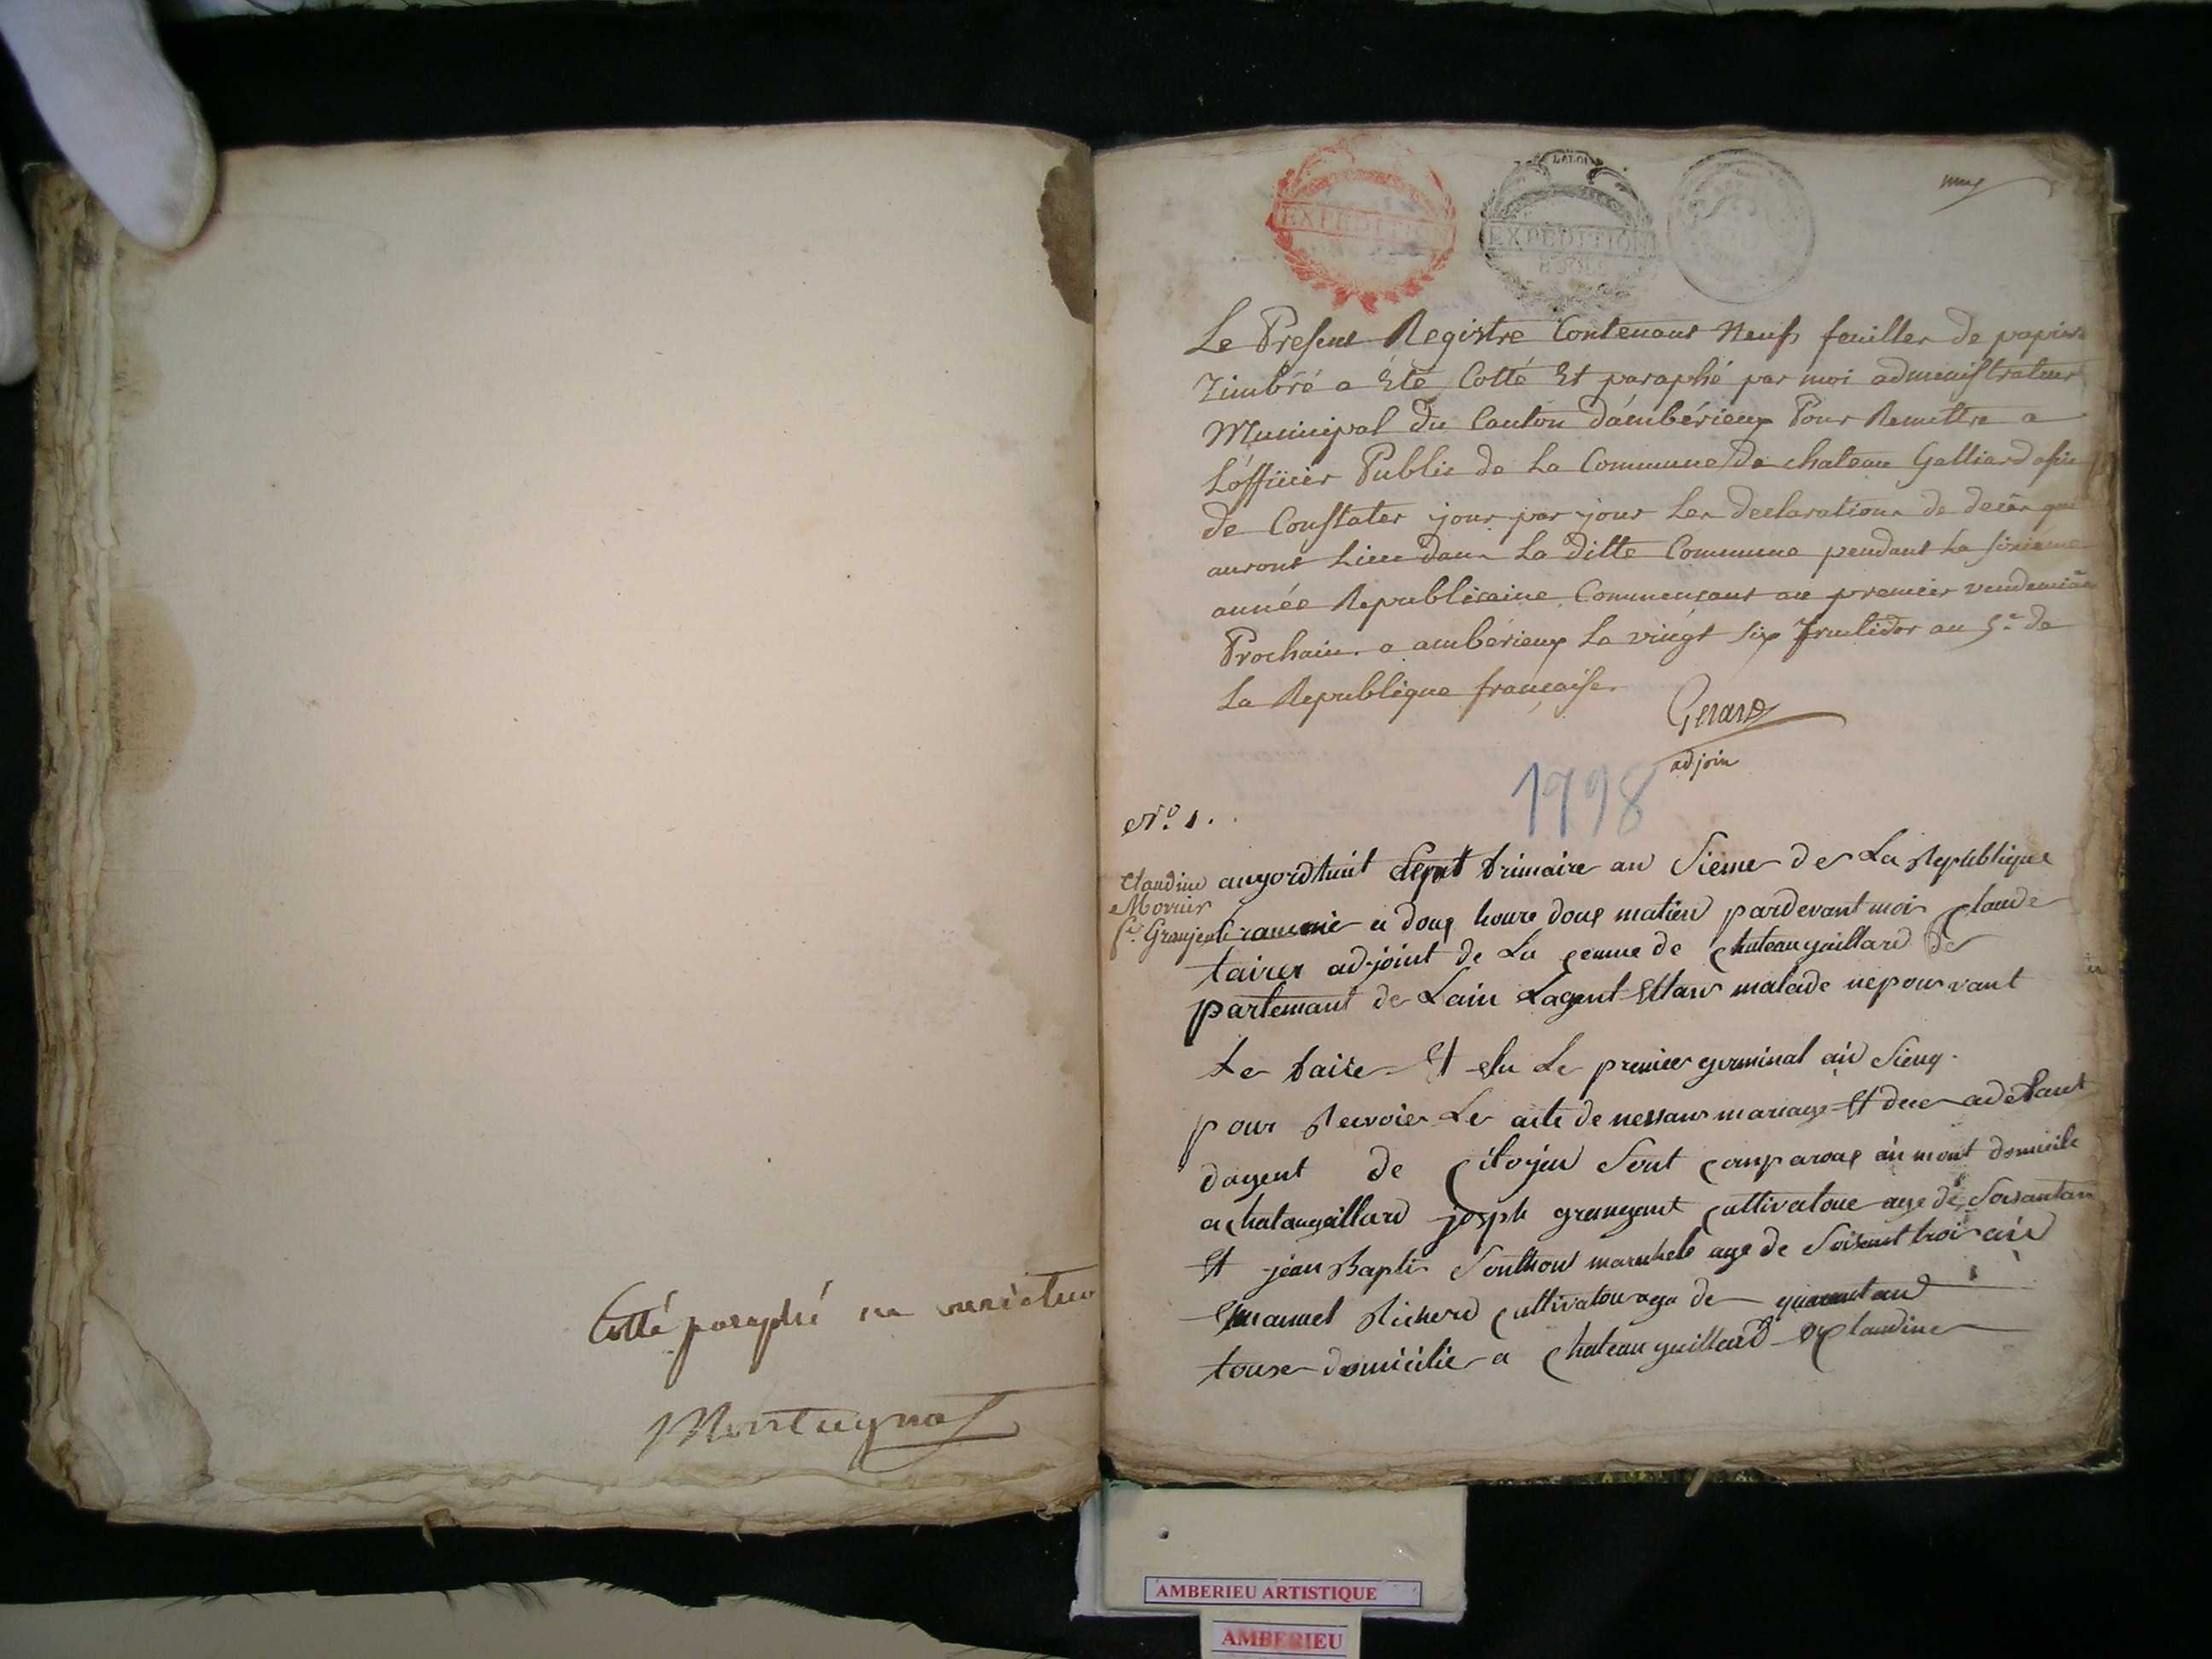 Cotté paraphé
Montagnat
LALOI
EXPEDITION
EXPEDITION
Le Present Registre Contenant Neufs feuilles de papier
Timbré a Eté Cotté Et paraphé par moi administrateur
Municipal du Canton d'ambérieux Pour Remettre a
L'officier Public de La Commune de chateau Galliard afin
de Constater jour par jour Les declarations de decès qui
auront Lieu dans La ditte Commune pendant La sixieme
année Republicaine Commencant au premier vendemiaire
Prochain. a ambérieux Le vingt six fructidor an 5.e de
La Republique française.
Gerard
adjoin
1798
N.o 1.
Claudine
Mornier
f.e Granjent
aujordhuit frimaire an Sieme de La Republique
a doux houre doux matien pardevant moi Claude
tairer adjoint de La comune de chateaugaillard de
partemant de Lain Lagent Ettans malade nepouvant
Le faire Et elu Le premier germinal an Sieux
pour Recvoir Les acte de nessans mariage Et dece adefaut
dagent de Citoyen Sont comparoux en mont domicile
achataugaillard joseph granjent cultivatoue age de Soisantan
Et jean Baptis Southon marichale age de Soisant trois an
Emanuel Richerd cultivatou age de quarantand
touse domicilie a Chateaugaillard Claudine
AMBERIEU ARTISTIQUE
AMBERIEU